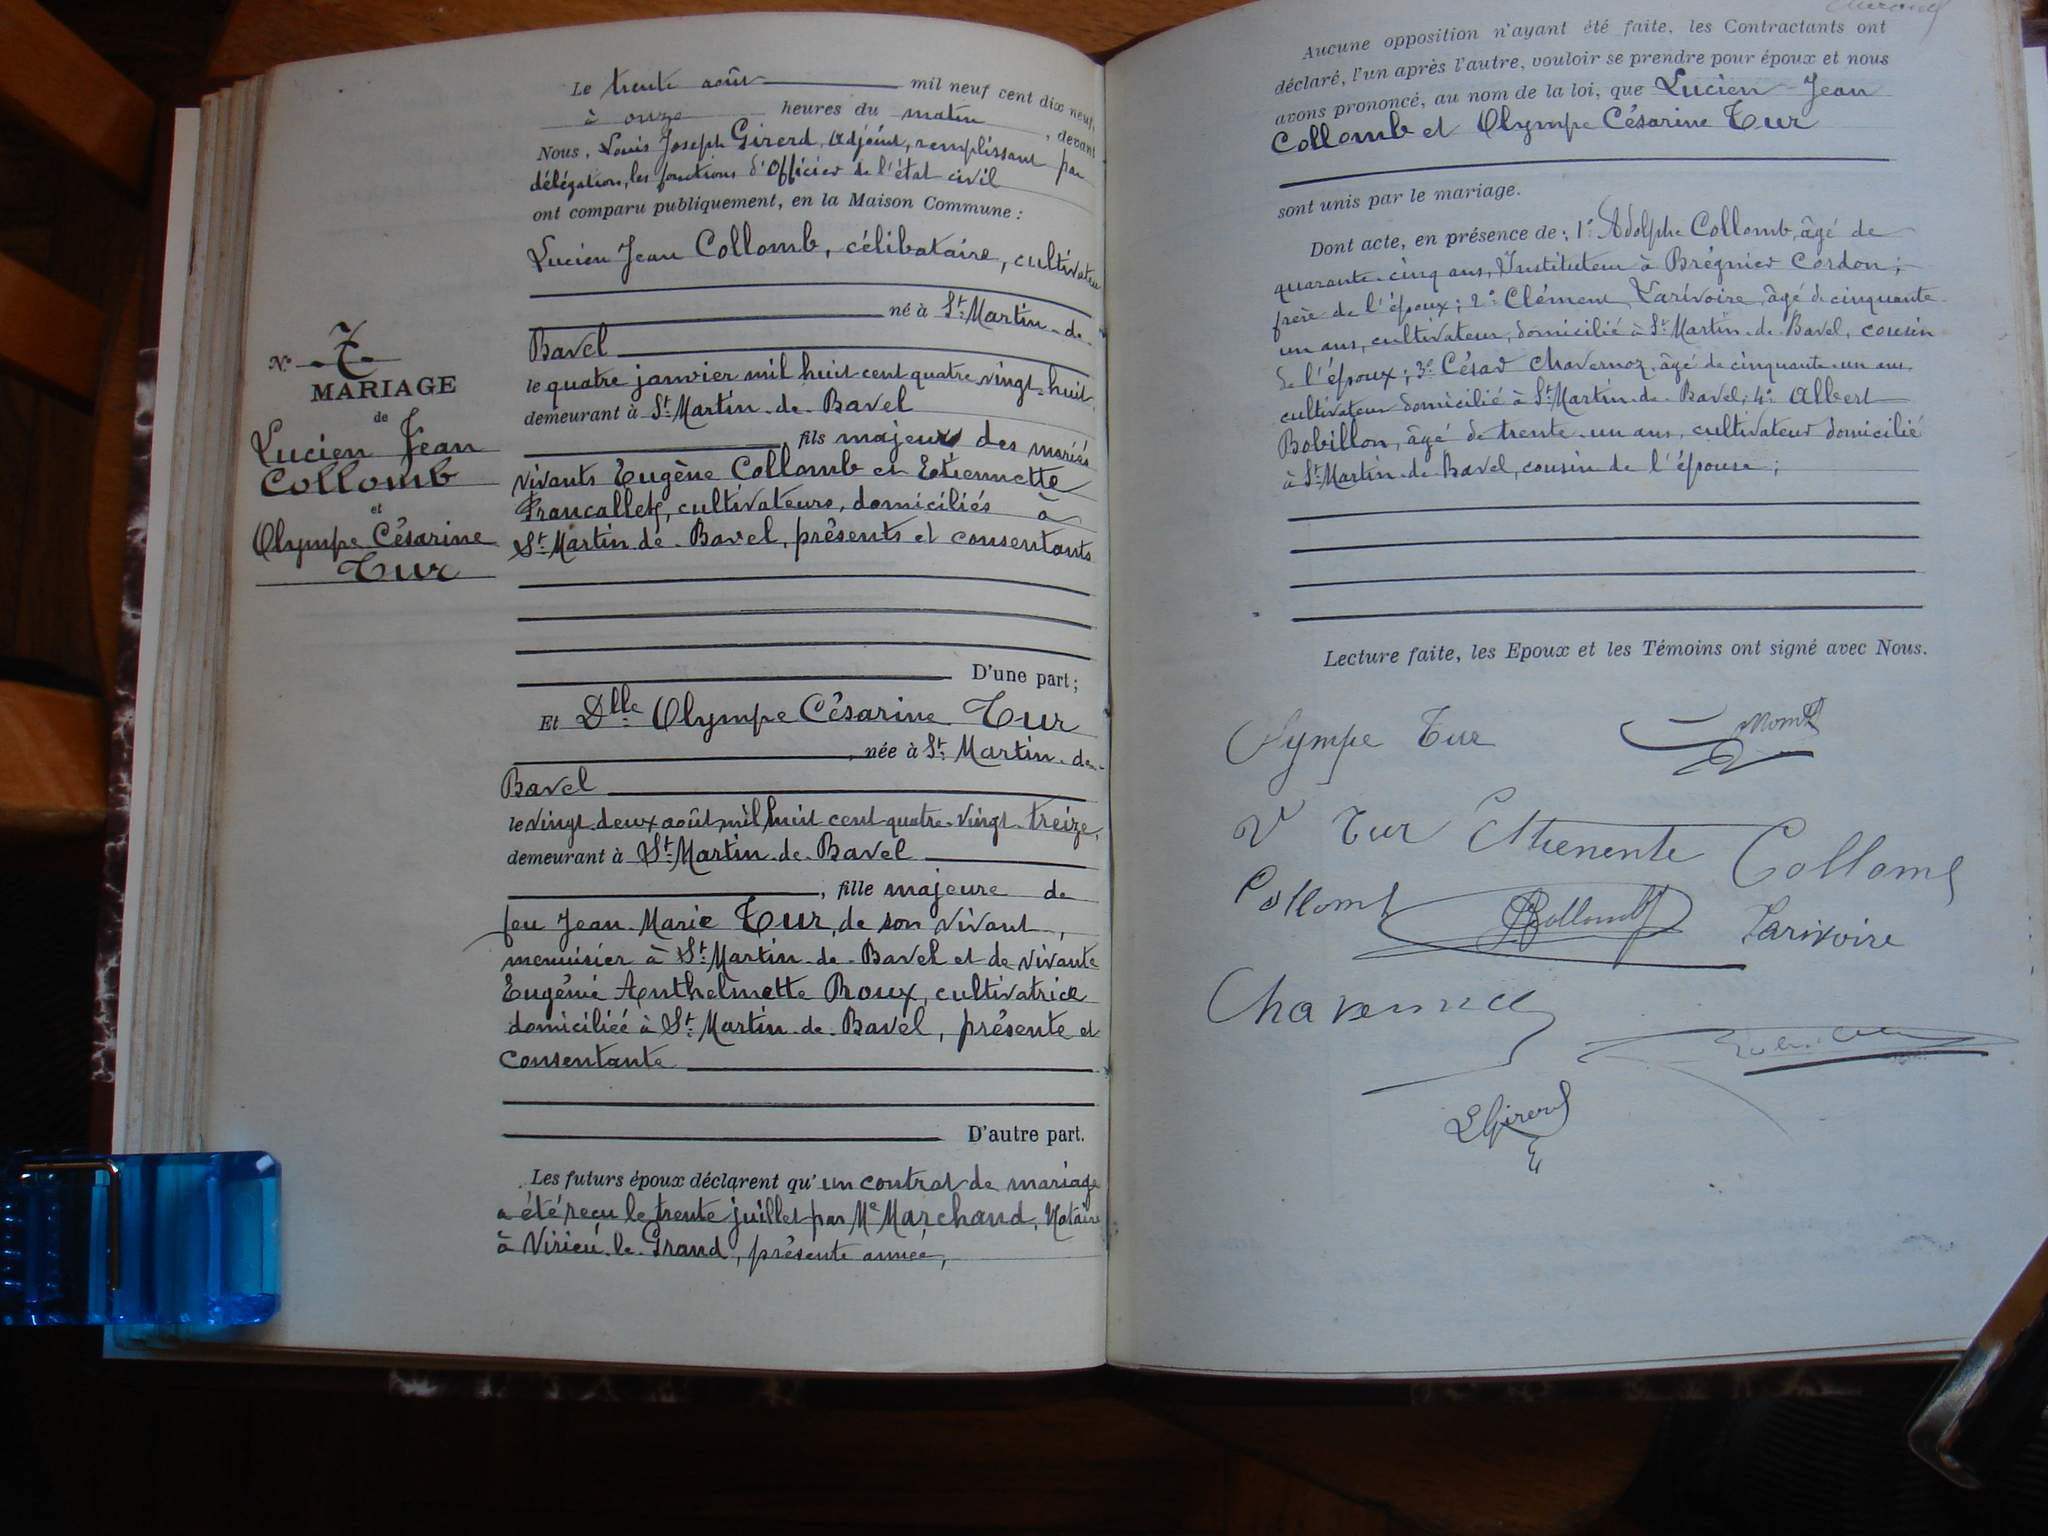 N° 7
MARIAGE
de
Lucien Jean
Collomb
et
Olympe Césarine
Tur
Le trente août mil neuf cent dix neuf,
à onze heures du matin, devant
Nous, Louis Joseph Girerd, Adjoint, remplissant par
délégation, les fonctions d'Officier de l'état civil
ont comparu publiquement, en la Maison Commune :
Lucien Jean Collomb, célibataire, cultivateur
né à St. Martin-de-
Bavel
le quatre janvier mil huit cent quatre vingt-huit,
demeurant à St. Martin-de-Bavel
, fils majeur des mariés
vivants Eugène Collomb et Etiennette
Francallet, cultivateurs, domiciliés à
St. Martin-de-Bavel, présents et consentants
D'une part ;
Et Dlle Olympe Césarine Tur
, née à St. Martin-de-
Bavel
le vingt-deux août mil huit cent quatre-vingt-treize,
demeurant à St. Martin-de-Bavel
, fille majeure de
feu Jean-Marie Tur, de son vivant,
menuisier à St. Martin-de-Bavel et de vivante
Eugénie Anthelmette Roux, cultivatrice
domiciliée à St. Martin-de-Bavel, présente et
consentante
D'autre part.
Les futurs époux déclarent qu'un contrat de mariage
a été reçu le trente juillet par Me Marchand, Notaire
à Virieu-le-Grand, présente année,
Aucune opposition n'ayant été faite, les Contractants ont
déclaré, l'un après l'autre, vouloir se prendre pour époux et nous
avons prononcé, au nom de la loi, que Lucien-Jean
Collomb et Olympe Césarine Tur
sont unis par le mariage.
Dont acte, en présence de : 1° Adolphe Collomb, âgé de
quarante-cinq ans, Instituteur à Brégnier Cordon ;
frère de l'époux ; 2° Clément Larivoire, âgé de cinquante-
un ans, cultivateur, domicilié à St. Martin-de-Bavel, cousin
de l'époux ; 3° César Chavernoz, âgé de cinquante-un ans
cultivateur domicilié à St. Martin-de-Bavel, 4° Albert
Bobillon, âgé de trente-un ans, cultivateur domicilié
à St. Martin-de-Bavel, cousin de l'épouse ;
Lecture faite, les Epoux et les Témoins ont signé avec Nous.
Olympe Tur
Vve Tur Collomb
Collomb Collomb Larivoire
L Girerd